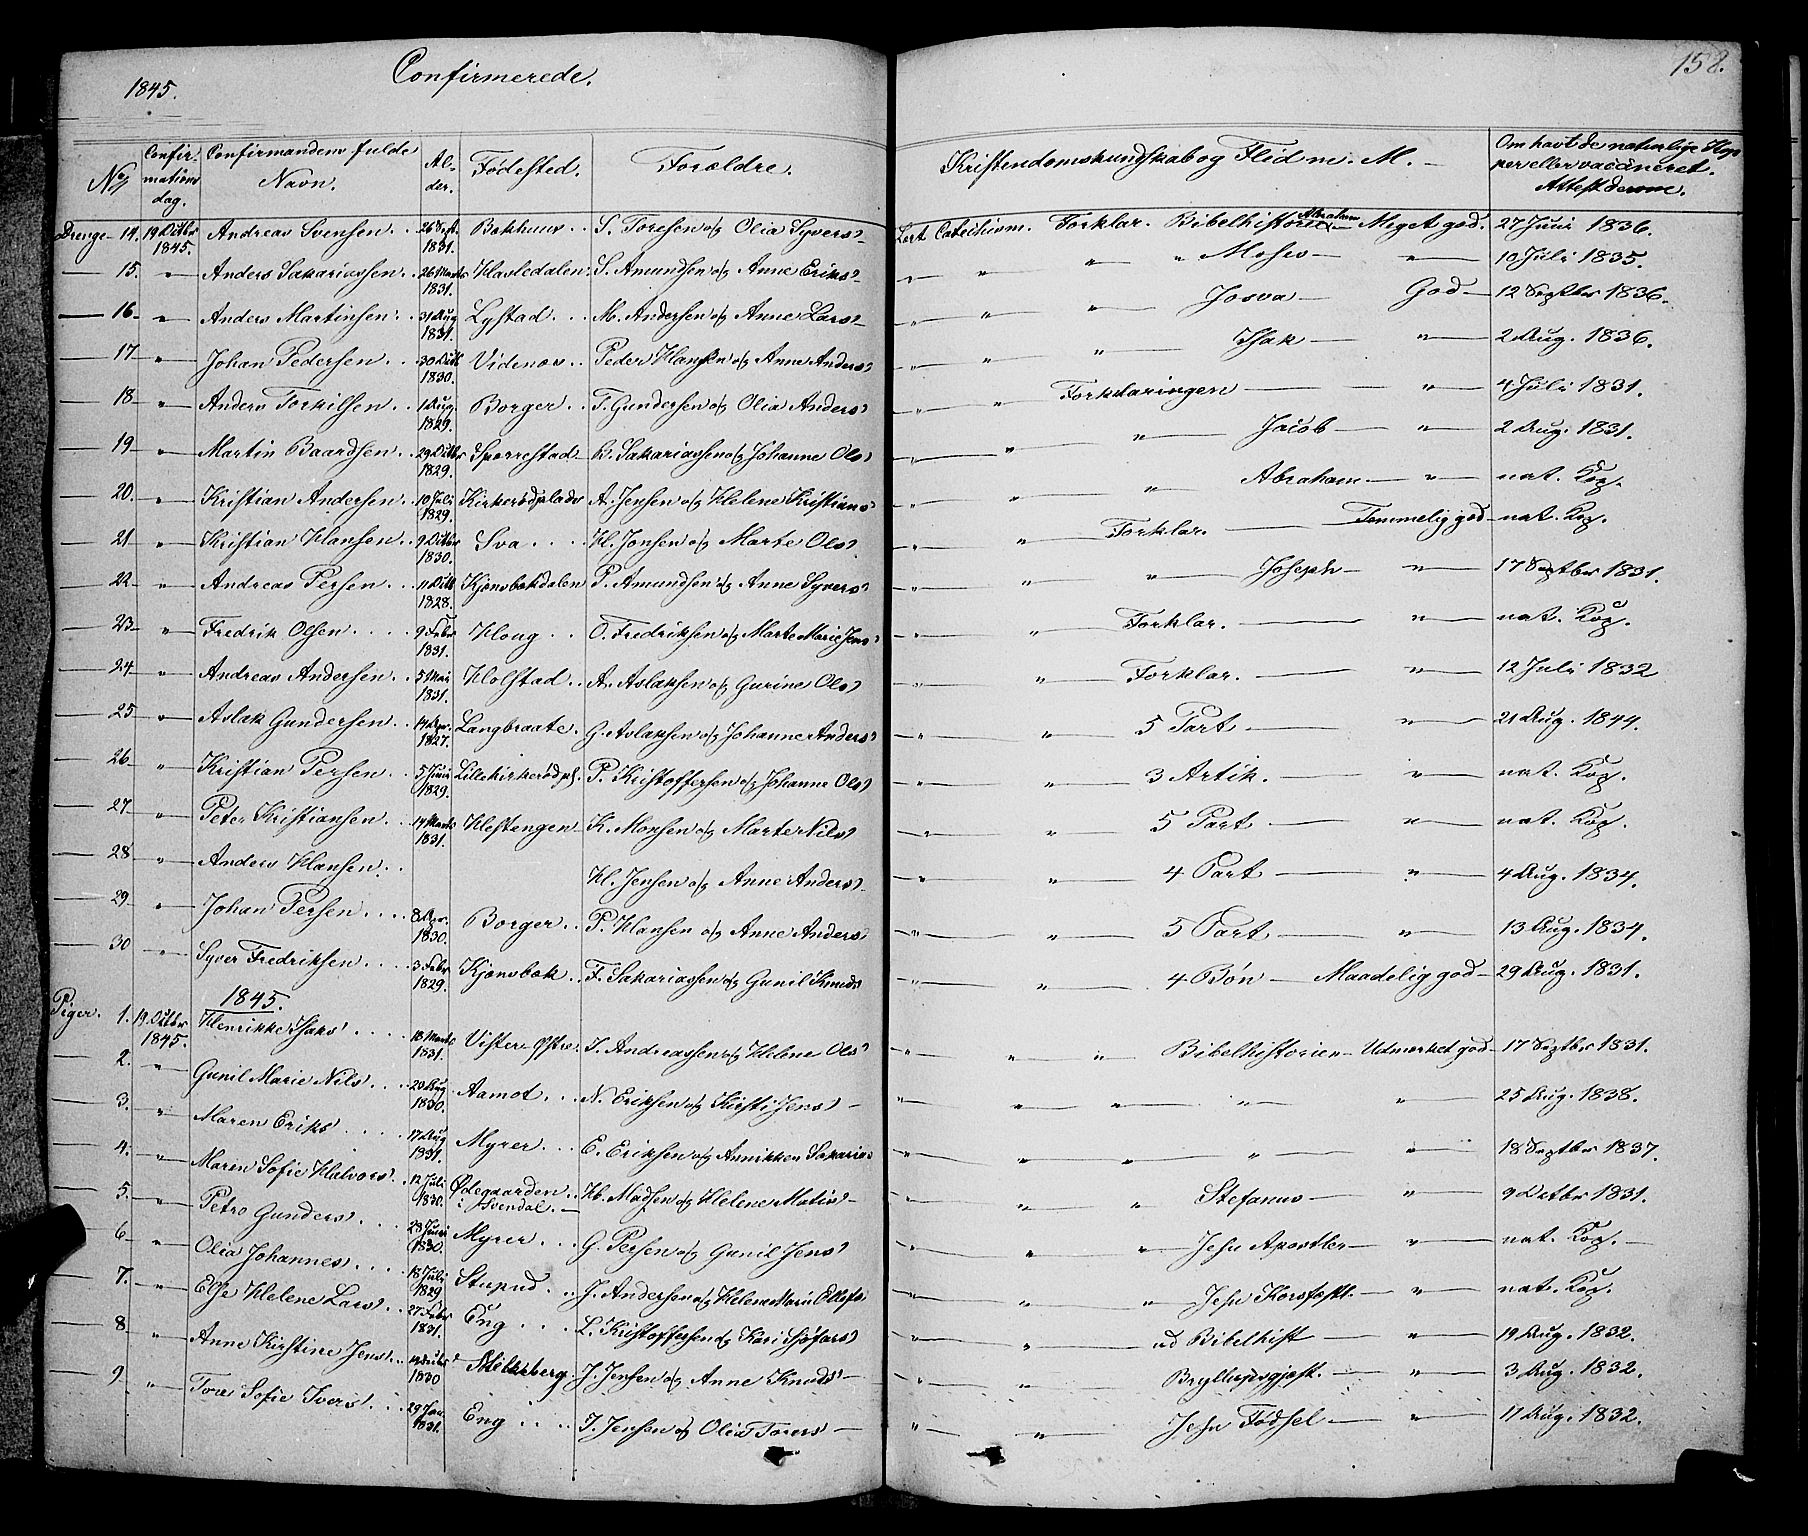 1845. Confirmerede. 158.
No/ Confirmations dag. Confirmandens fulde Navn. Alder. Fødested. Forældre. Kristendomskundskab og Flid m. M. — Om havt de naturlige Kopper eller vaccineret. Attest derom.
Drenge 14. 19 Octbr 1845. Andreas Svensen. 26 Sept. 1831. Bakhuus S. Toresen og Olia Syvers Lært Catechism. Forklar. Bibelhistorie Abraham Meget god. 27 Juni 1836.
15. " Anders Sakariassen. 26 Marts 1831. Hasledalen S. Amundsen og Anne Eriks " " " " Moses — " 10 Juli 1835.
16. " Anders Martinsen. 31 Aug 1831. Lystad M. Andersen og Anne Lars " " " Josva — God — 12 Septbr 1836.
17 " Johan Pedersen 30 Octb 1830. Videnes Peder Hansen og Anne Anders " " " Isak — " 2 Aug. 1836.
18 " Anders Torkilsen 1 Aug 1829. Borger T. Gundersen og Olia Anders " " Forklaringen — " 4 Juli 1831.
19 " Martin Baardsen 29 Octbr 1829. Sporrestad B. Sakariassen og Johanne Ols " " " Jacob — " 2 Aug. 1831.
20. " Kristian Andersen 10 Juli 1829. Kirkerødplads A. Jensen og Helene Kristians " " " Abraham — " nat. Kop.
21 " Kristian Hansen 9 Octbr 1830. Sva H. Jonsen og Marte Ols " " Forklar. — Temmelig god nat. Kop.
22 " Andreas Persen 11 Octb 1828. Kjønsbækdalen P. Amundsen og Anne Syvers " " " Joseph — " 17 Septbr 1831.
23 " Fredrik Olsen 9 Febr 1831. Houg O. Fredriksen og Marte Marie Jens " " Forklar. — " nat. Kop.
24 " Andreas Andersen 5 Mai 1831. Holstad A. Aslaksen og Gurine Ols " " Forklar. — " 12 Juli 1832
25 " Aslak Gundersen 14 1827. Langbraate G. Aslaksen og Johanne Anders " " 5 Part — " 21 Aug. 1844.
26 " Kristian Persen 5 Juni 1829. Lillekirkerødpl. P. Kristoffersen og Johanne Ols " " 3 Artik. — " nat. Kop.
27 " Peter Kristiansen 14 Marts 1831. Hestengen K. Monsen og Marte Nils " " 5 Part — " nat. Kop.
28 " Anders Hansen H. Jensen og Anne Anders " " 4 Part — " 4 Aug. 1834.
29 " Johan Persen 8 1830. Borger P. Hansen og Anne Anders " " 5 Part — " 13 Aug. 1834.
30 " Syver Fredriksen 3 Febr 1829. Kjønsbæk F. Sakariassen og Gunil Knuds " " 4 Bøn — Maadelig god — 29 Aug. 1831.
1845.
Piger. 1. 19. Octbr 1845. Henrikke Isaks 18 Marts 1831. Vister Østre. I. Andreassen og Helene Ols " " " Bibelhistorien — Udmærket god 17 Septbr 1831.
2. " Gunil Marie Nils 20 Aug 1830. Aamot N. Eriksen og Kirsti Jens — " " " " 25 Aug. 1838.
3. " Maren Eriks 17 Aug 1831. Myrer E. Eriksen og Annikken Sakarias " " " " " 18 Septbr 1837.
4. " Maren Sofie Halvors 12 Juli 1830. Ødegaarden i Svendal. — H. Madsen og Helene Matis — " " " Stefanus — " 9 Octbr 1831.
5. " Petro Gunders 23 Juni 1830. Myrer G. Persen og Gunil Jens " " " Jesu Apostler — " nat. Kop.
6 " Olia Johannes 18 Juli 1829. Stupud J. Andersen og Helene Marie Ellefs " " Jesu Korsfæst. — " nat. Kop.
7. " Else Helene Lars 27 Febr 1831. Eng L. Kristoffersen og Kari Sjøfars " " ud Bibelhist — " 19 Aug. 1832.
8. " Anne Kirstine Jens 14 Octbr 1830 Melleberg J. Jensen og Anne Knuds — " " Bryllupsgjæst. — " 3 Aug. 1832.
9 " Tore Sofie Ivers 29 Jan. 1831. Eng I. Jensen og Olia Torers — " " Jesu Fødsel — " 11 Aug. 1832.